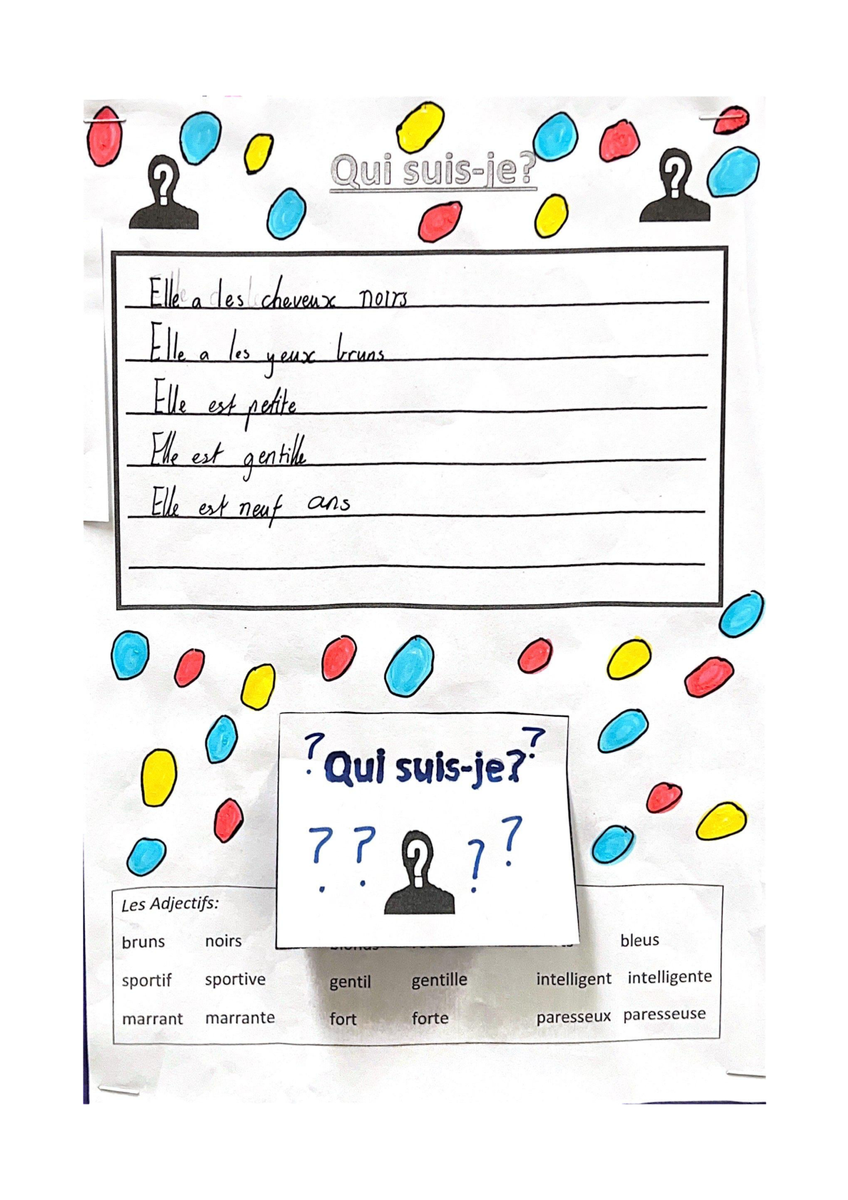 Qui suis-je?
Elle a les cheveux noirs
Elle a les yeux bruns
Elle est petite
Elle est gentille
Elle est neuf ans
? Qui suis-je? ?
? ? ? ?
Les Adjectifs:
bruns noirs bleus
sportif sportive gentil gentille intelligent intelligente
marrant marrante fort forte paresseux paresseuse